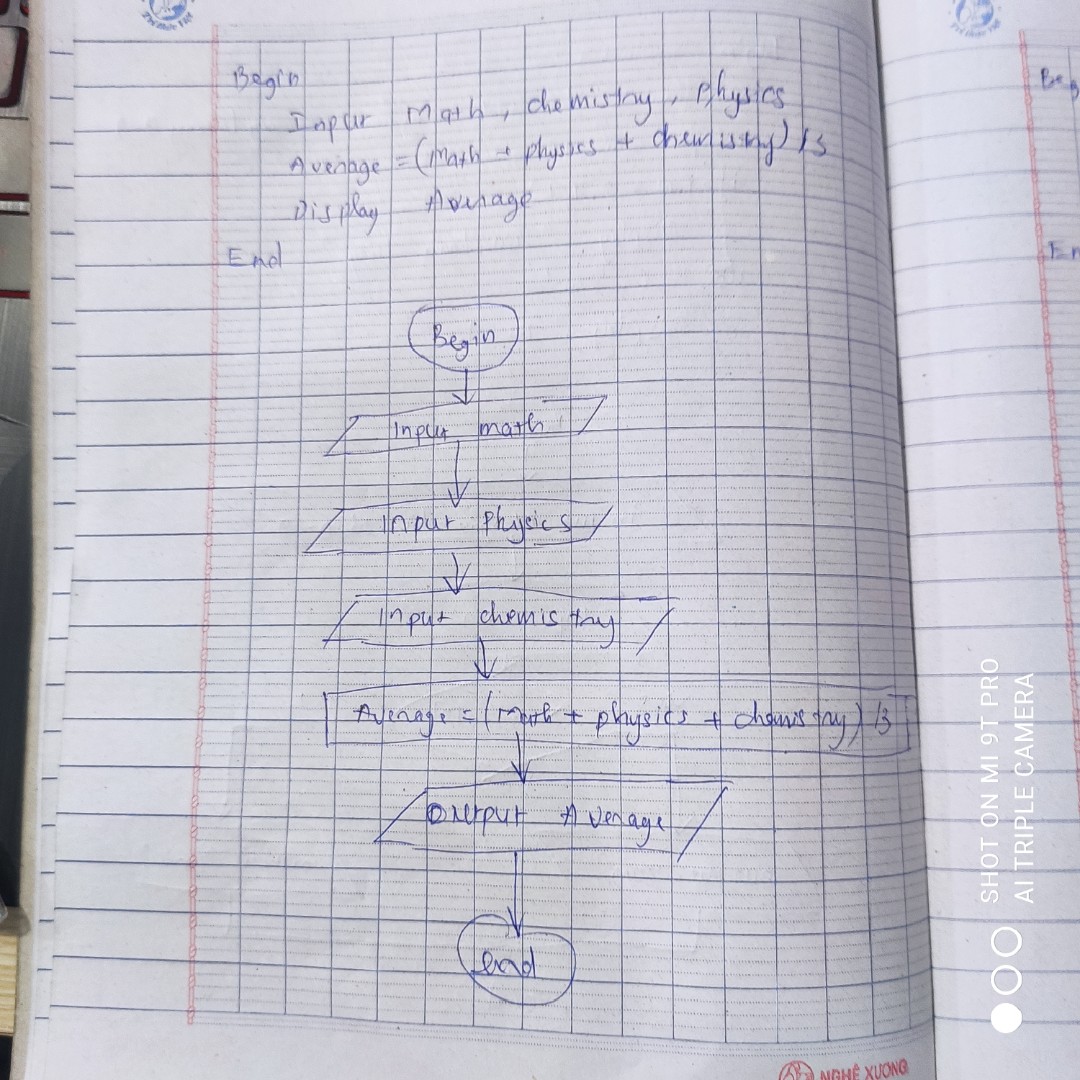 Begin
Input Math, chemistry, Physics
Average = (Math + physics + chemistry) / 3
Display Average
End
Begin
Input math
Input Physics
Input chemistry
Average = (Math + physics + chemistry) / 3
Output Average
end
SHOT ON MI 9T PRO
AI TRIPLE CAMERA
NGHÊ XƯƠNG